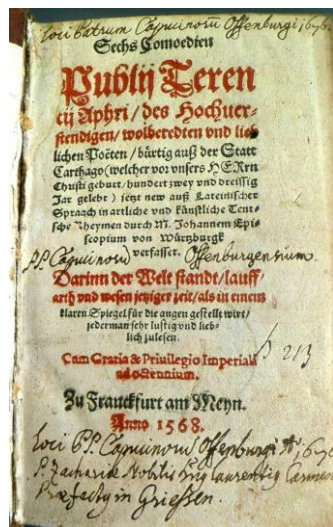 Loci Patrum Capucinorū Offenburgi 1676
Sechs Comoedien
Publij Teren
tij Aphri / des Hochuer-
stendigen / wolberedten vnd lieb-
lichen Poëten / bürtig auß der Statt
Carthago (welcher vor vnsers HERrn
Christi geburt / hundert zwey vnd dreissig
Jar gelebt) jetzt new auß Lateinischer
Spraach in artliche vnd künstliche Teut-
sche Rheymen durch M. Johannem Epi-
scopium von Würtzburgk
verfasset.
PP. Capucinorū Offenburgensium.
Darinn der Welt standt / lauff /
arth vnd wesen jetziger zeit / als in einem
klaren Spiegel für die augen gestellt wirt /
jederman sehr lustig vnd lieb-
lich zulesen.
213
Cum Gratia & Priuilegio Imperiali
ad octennium.
Zu Franckfurt am Meyn.
Anno 1568.
Loci PP. Capucinorū Offenburgi 1676
P. Zachariæ Nobilis
in Griessen.